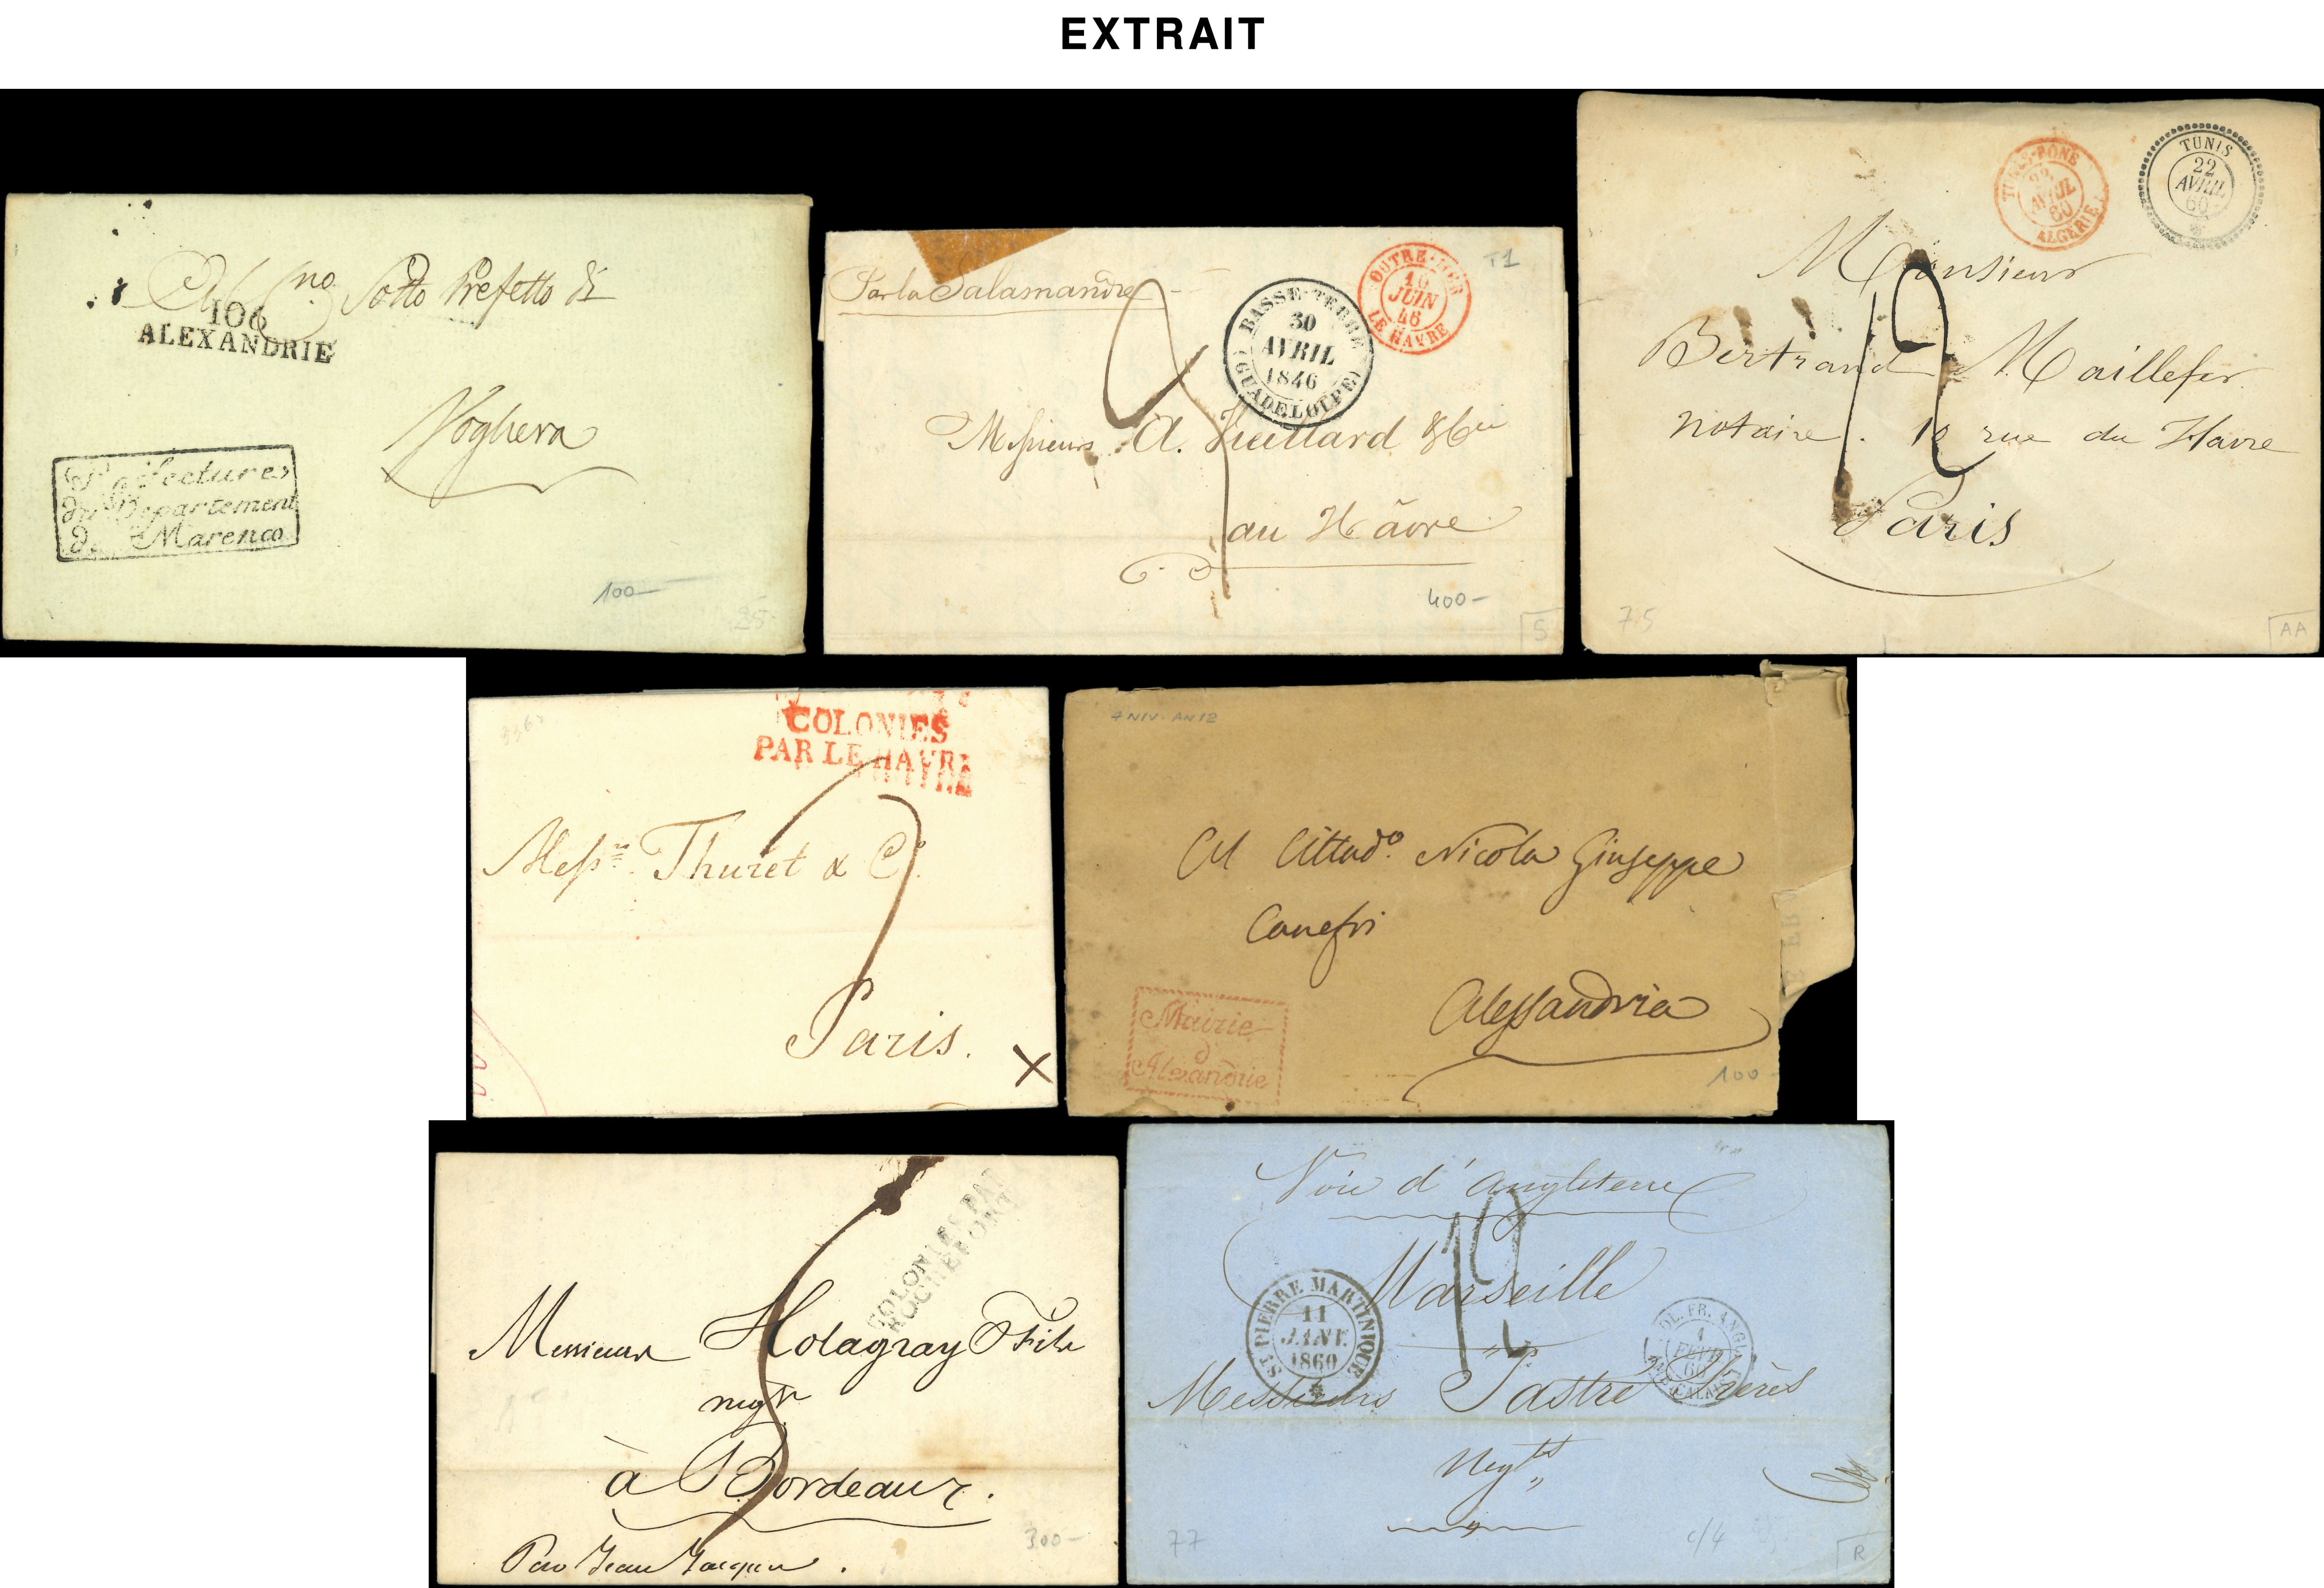 EXTRAIT
Sotto Prefetto di
106
ALEXANDRIE
Voghera
Préfecture
du Département
de Marengo
100-
25
Par la Salamandre
T1
OUTRE-MER
10
JUIN
46
LE HAVRE
BASSE-TERRE
30
AVRIL
1846
(GUADELOUPE)
2
Messieurs A. Vuillard & Cie
au Hâvre
400-
S
TUNIS-BONE
22
AVRIL
60
ALGERIE
TUNIS
22
AVRIL
60
Monsieur
12
Bertrand Maillefer
notaire. 10 rue du Havre
Paris
75
AA
COLONIES
PAR LE HAVRE
7
Messrs. Thuret & Co.
Paris.
X
7 NIV. AN 12
Al Cittado. Nicola Giuseppe
Canefri
Alessandria
Mairie
d'
Alexandrie
100
COLONIES PAR
ROCHEFORT
5
Messieurs Holagray Fils
negts
à Bordeaux.
Par Jean Jacques.
300-
Voie d'Angleterre
12
Marseille
ST. PIERRE MARTINIQUE
11
JANV.
1860
COL. FR. ANGL.
1
FEVR
60
CALAIS
Messieurs Pastré Frères
Negts
77
c/4
R